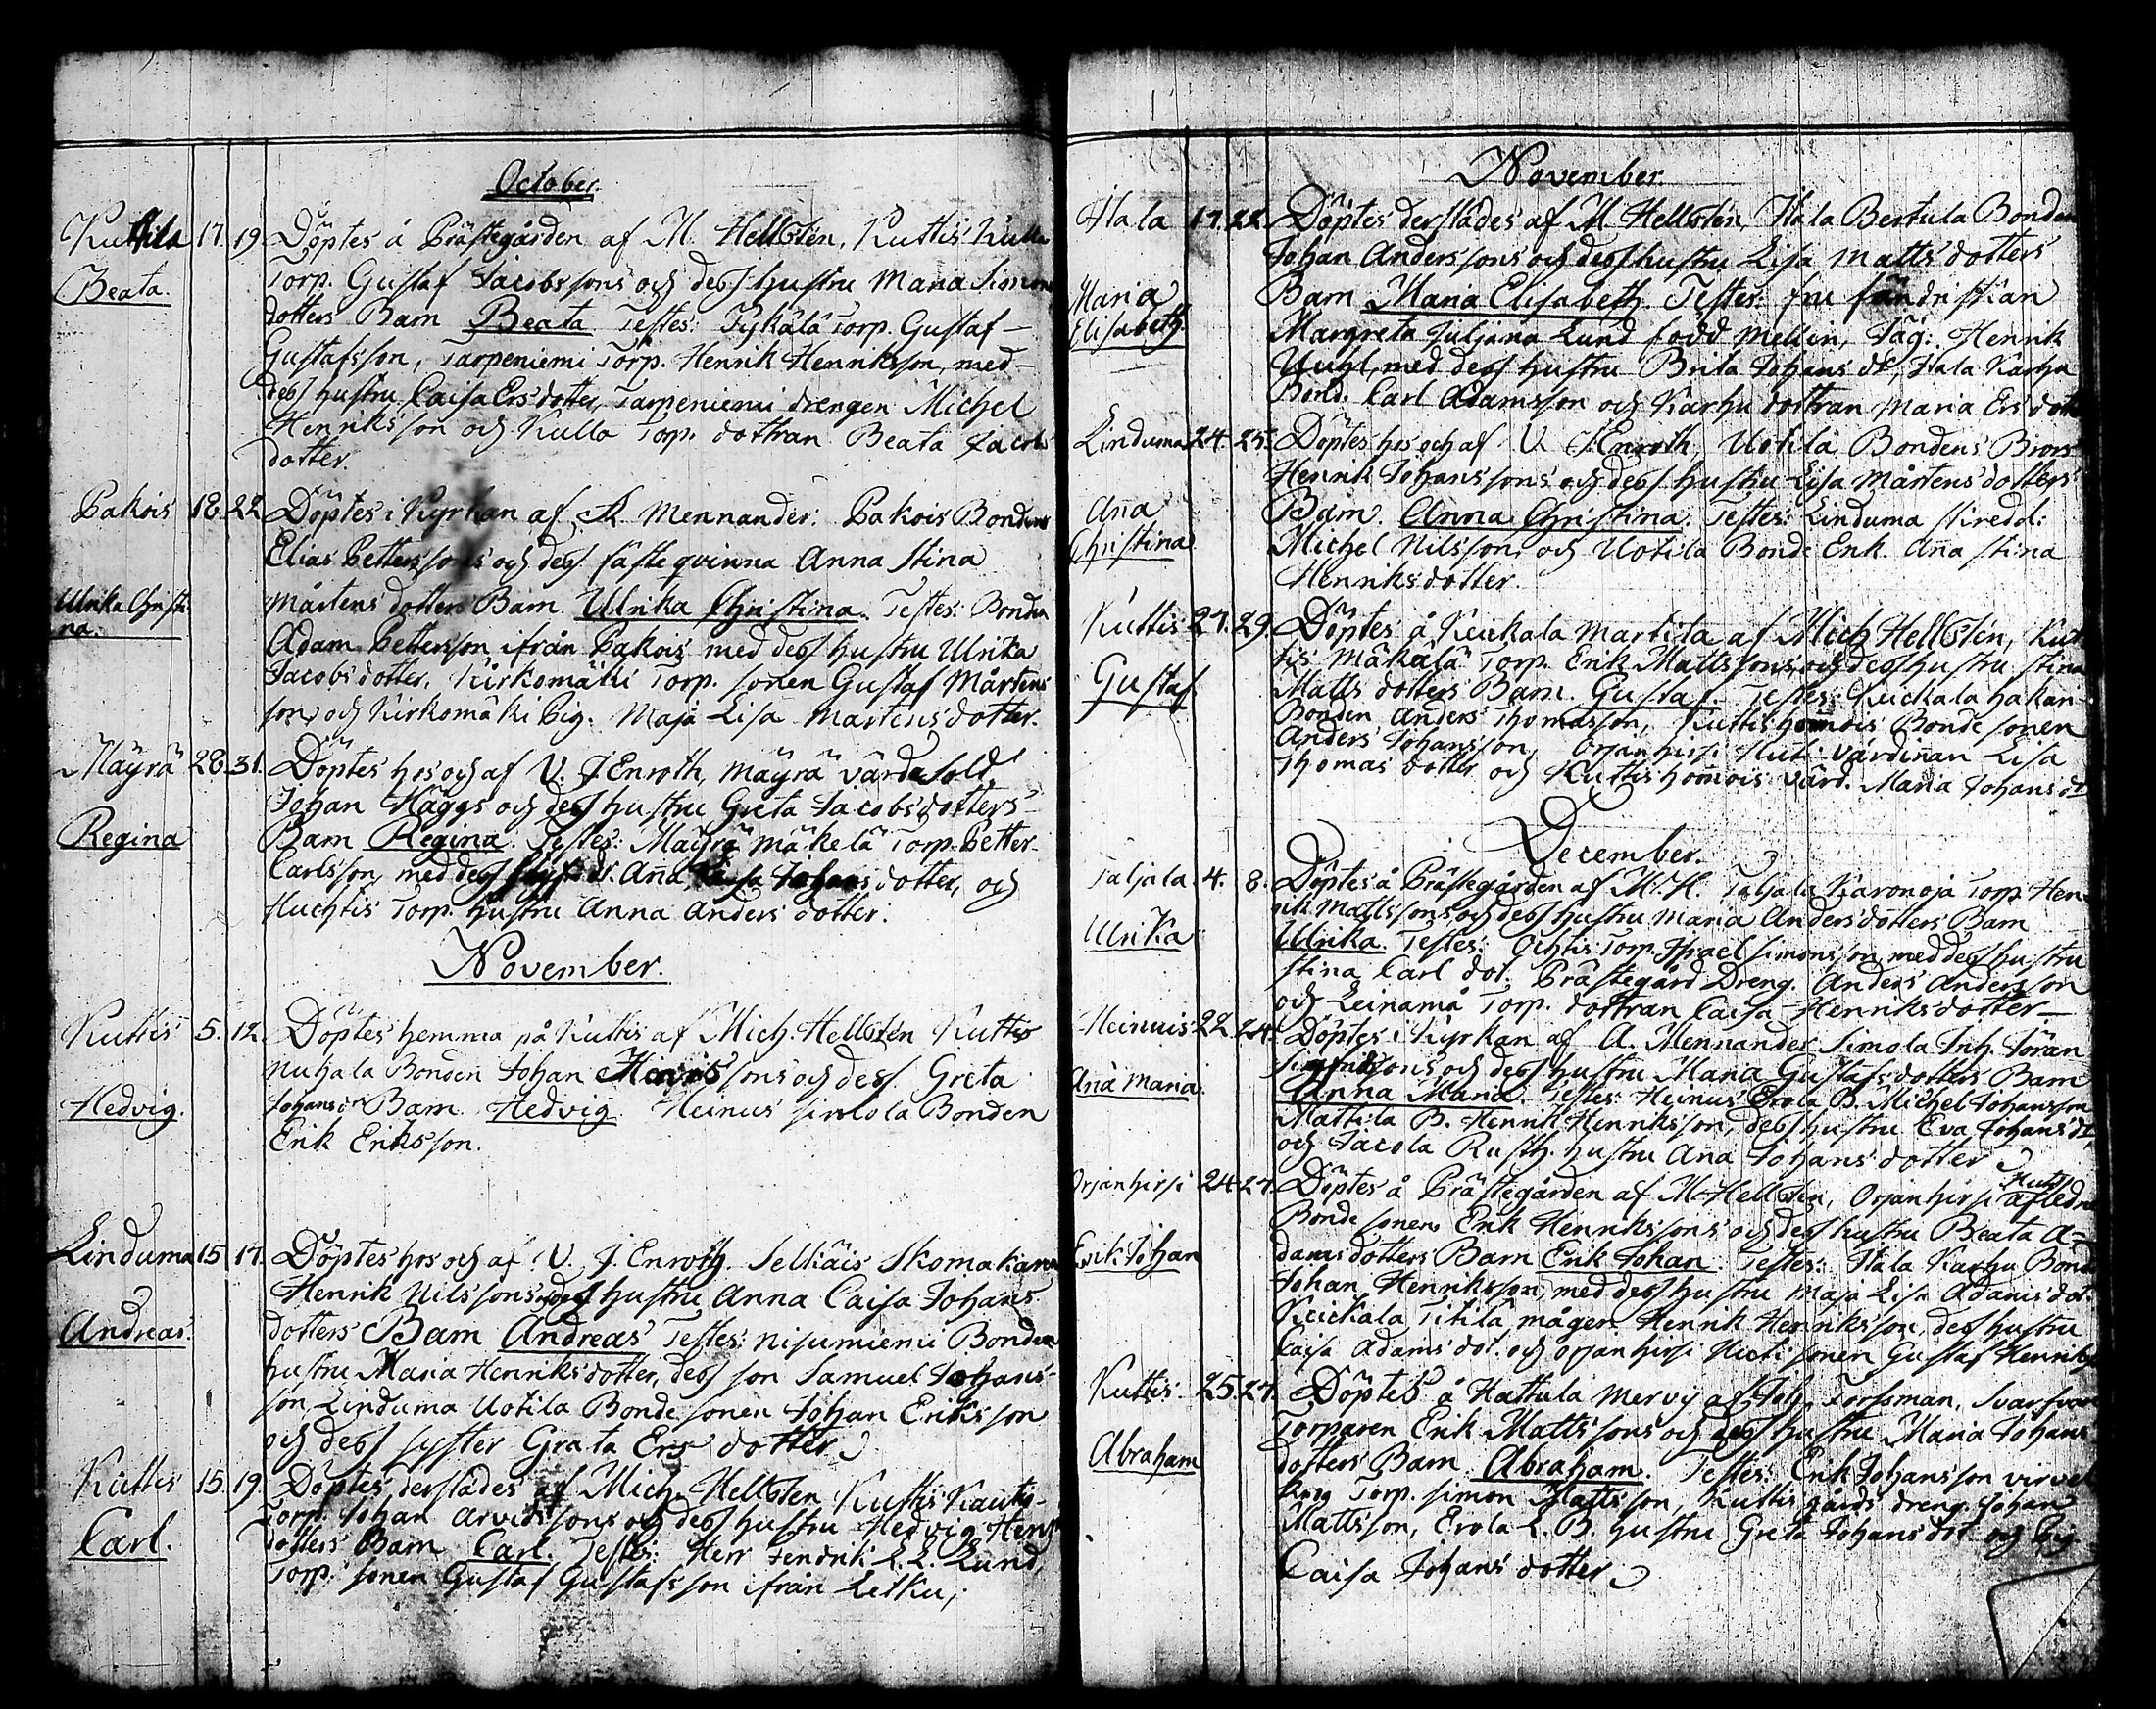 October.
Kuttila 17. 19. Döptes å Prästegården af M. Hellstén, Kuttis Kulla
Torp. Gustaf Jacobssons och dess hustru Maria Simons
Beata.
dotters Barn Beata Testes: Tykälä Torp. Gustaf
Gustafsson, Tarpeniemi Torp. Henrik Henriksson, med
dess hustru Caisa Ersdotter, Tarpeniemi drengen Michel
Henriksson och Kulla Torp. dottran Beata Jacobs
dotter.
Pakois 18. 22 Döptes i Kyrkan af A. Mennander. Pakois Bondens
Elias Petterssons och dess fästeqvinna Anna Stina
Ulrika Christi
na.
Mårtens dotters Barn. Ulrika Christina. Testes: Bonden
Adam Pettersson ifrån Pakois med dess hustru Ulrika
Jacobs dotter, Kirkomäki Torp. sonen Gustaf Mårtens
son, och Kirkomäki Pig. Maja Lisa Martens dotter.
Mäyrä 28. 31. Döptes hos och af V. J Enroth, Mäyrä värda sold.
Johan Häggs och dess hustru Greta Jacobs dotters
Regina
Barn Regina. Testes: Mäyrä Mäkelä Torp. Petter
Carlsson, med dess Anna Caisa Johans dotter, och
Huchtis Torp. hustru Anna Anders dotter.
November.
Kuttis 5. 12. Döptes hemma på Kuttis af Mich. Hellstén Kuttis
Nuhala Bonden Johan Henrissons och dess Greta
Hedvig.
Johans dr Barn Hedvig. Heinus simola Bonden
Erik Eriksson.
Linduma 15. 17. Döptes hos och af V. J. Enroth. Selkäis Skomakaren
Henrik Nilssons och dess hustru Anna Caisa Johans
Andreas.
dotters Barn Andreas Testes: Nisumiemi Bondens
hustru Maria Henriks dotter, dess son Samuel Johans
son Linduma Uotila Bonde sonen Johan Eriksson
och dess syster Greta Ers dotter
Kuttis 15. 19. Döptes derstädes af Mich. Hellsten Kuttis Kautis
Torp. Johan Arvidssons och dess hustru Hedvig Henr
Carl.
dotters Barn Carl. Testes: Herr Fendrik L. L. Lund,
Torp. sonen Gustaf Gustafsson ifrån Letku;
November.
Itala 17. 22. Döptes derstädes af M Hellstén, Itala Bertula Bonden
Johan Anderssons och dess hustru Lisa Matts dotters
Maria
Elisabeth.
Barn Maria Elisabeth. Testes: fru fändriskan
Margreta Juliana Lund född Mellin, Täg: Henrik
Uuhl, med dess hustru Brita Johans dt, Itala Karhu
Bond. Carl Adamsson och Karhu dottran Maria Ers dott
Linduma 24. 25. Döptes hos och af V. J Enroth, Uotila Bondens Brors
Henrik Johanssons och dess hustru Lisa Mårtens dotters
Aña
Christina
Barn. Anna Christina. Testes: Linduma skredd:
Michel Nilsson, och Uotila Bonde Enk. Aña Stina
Henriksdotter.
Kuttis 27. 29. Döptes å Keickala Martila af Mich Hellstén, Kut
tis Mäkälä Torp. Erik Mattssons, och dess hustru Stina
Gustaf
Matts dotters Barn. Gustaf Testes: Keickala hakari
Bonden Anders Thomasson, Kuttis homois Bonde sonen
Anders Johansson, Orjanhirsi Huti värdinan Lisa
Thomas dotter och Kuttis homois värd. Maria Johans dt
December.
Taljala. 4. 8. Döptes å Prästegården af M. H. Taljala Karonoja Torp Hen
rik Mattssons och dess hustru Maria Anders dotters Barn
Ulrika
Ulrika. Testes: Ochtis Torp. Israel Simonsson med dess hustru
Stina Carl dot. Prästegård Dreng. Anders Andersson
och Leinamä Torp. dottran Caisa Henriks dotter
Heinuis 22. 24. Döptes i Kyrkan af A. Mennander Simola Inh. Jöran
Simonssons och dess hustru Maria Gustafs dotters Barn
Aña Maria.
Anna Maria. Testes: Heinus Erola B. Michel Johansson
Mattila B. Henrik Henriksson, dess hustru Eva Johans dt,
och Jacola Rusth. hustru Ana Johans dotter
Orjanhirsi 24. 27. Döptes å Prästegården af M. Hellstén, Orjanhirsi Huti afledn
Bonde sonens Erik Henrikssons och dess hustru Beata A-
Erik Johan
dams dotters Barn Erik Johan. Testes: Itala Karhu Bond
Johan Henriksson, med dess hustru Maja Lisa Adams dot.
Keickala Titila mågen Henrik Henriksson, dess hustru
Caisa Adams dot. och Orjanhirsi Huti sonen Gustaf Henriks
Kuttis. 25. 27. Döptes å Hattula Mervy af Joh. Forsman.
Torparen Erik Mattssons och dess hustru Maria Johans
Abraham
dotters Barn Abraham. Testes: Erik Johansson
Torp. Simon Mattsson, Kuttis gårds dreng. Johan
Mattsson, Erola L. B. hustru Greta Johans dot. och Pig
Caisa Johans dotter